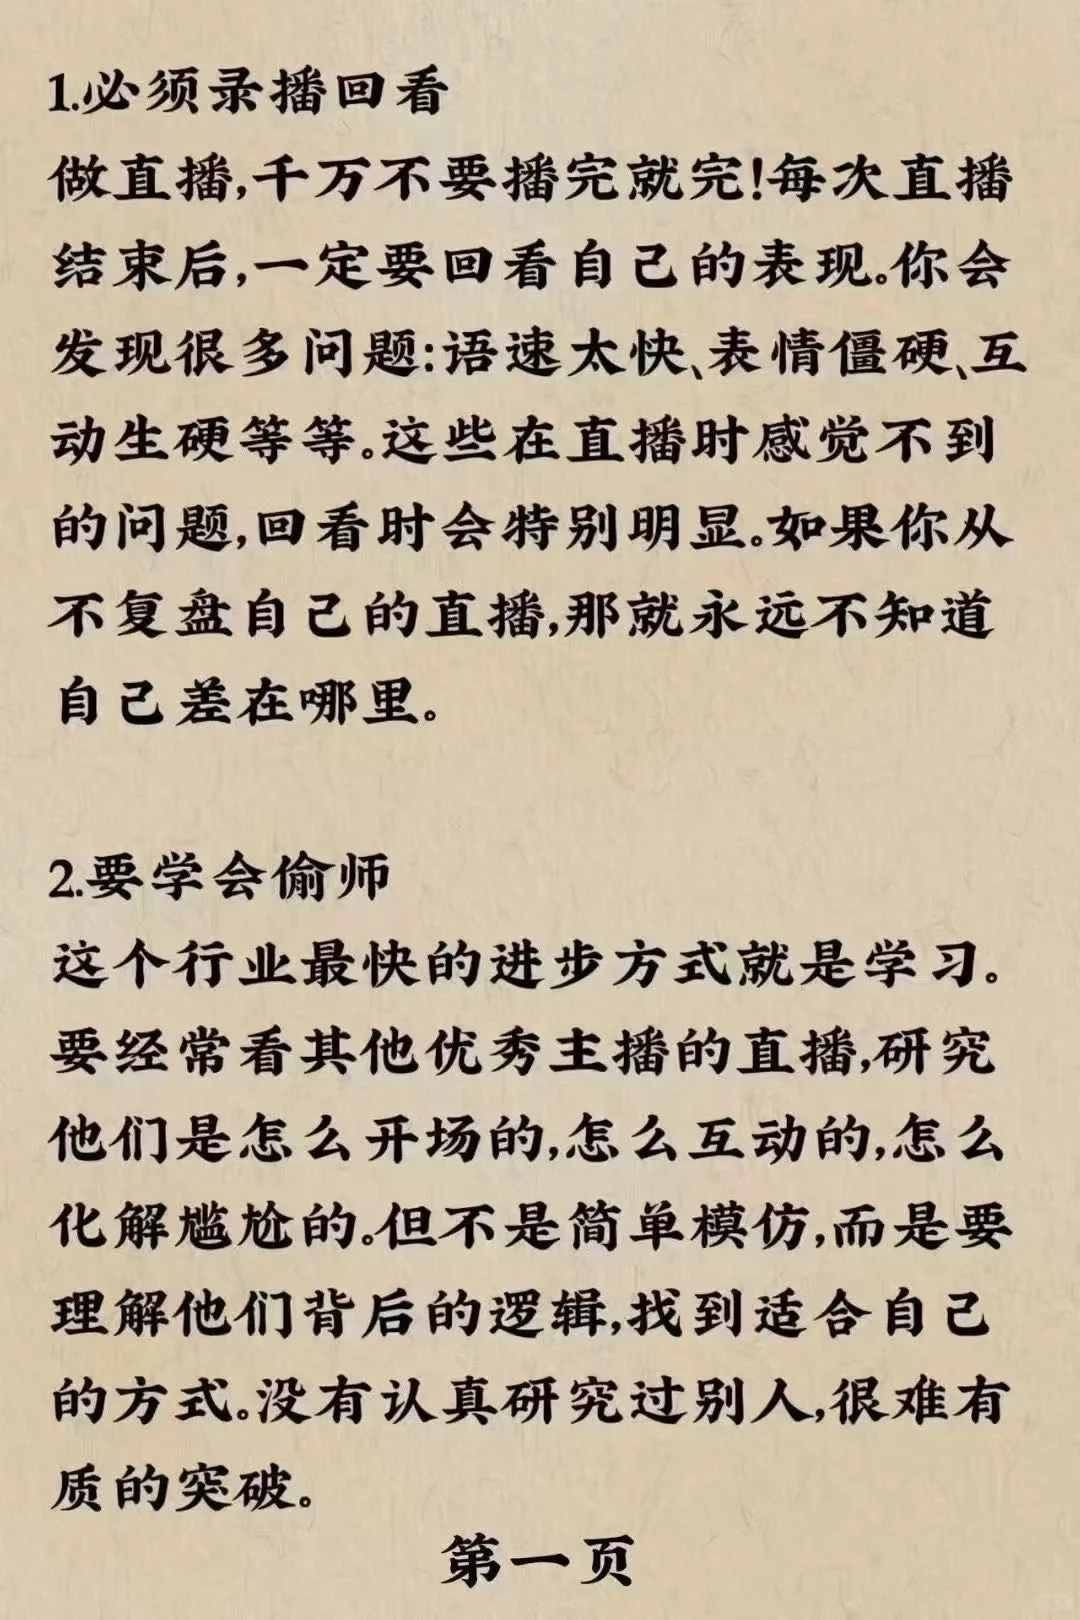 1.必须录播回看
做直播,千万不要播完就完!每次直播
结束后,一定要回看自己的表现。你会
发现很多问题:语速太快、表情僵硬、互
动生硬等等。这些在直播时感觉不到
的问题,回看时会特别明显。如果你从
不复盘自己的直播,那就永远不知道
自己差在哪里。
2.要学会偷师
这个行业最快的进步方式就是学习。
要经常看其他优秀主播的直播,研究
他们是怎么开场的,怎么互动的,怎么
化解尴尬的。但不是简单模仿,而是要
理解他们背后的逻辑,找到适合自己
的方式。没有认真研究过别人,很难有
质的突破。
第一页